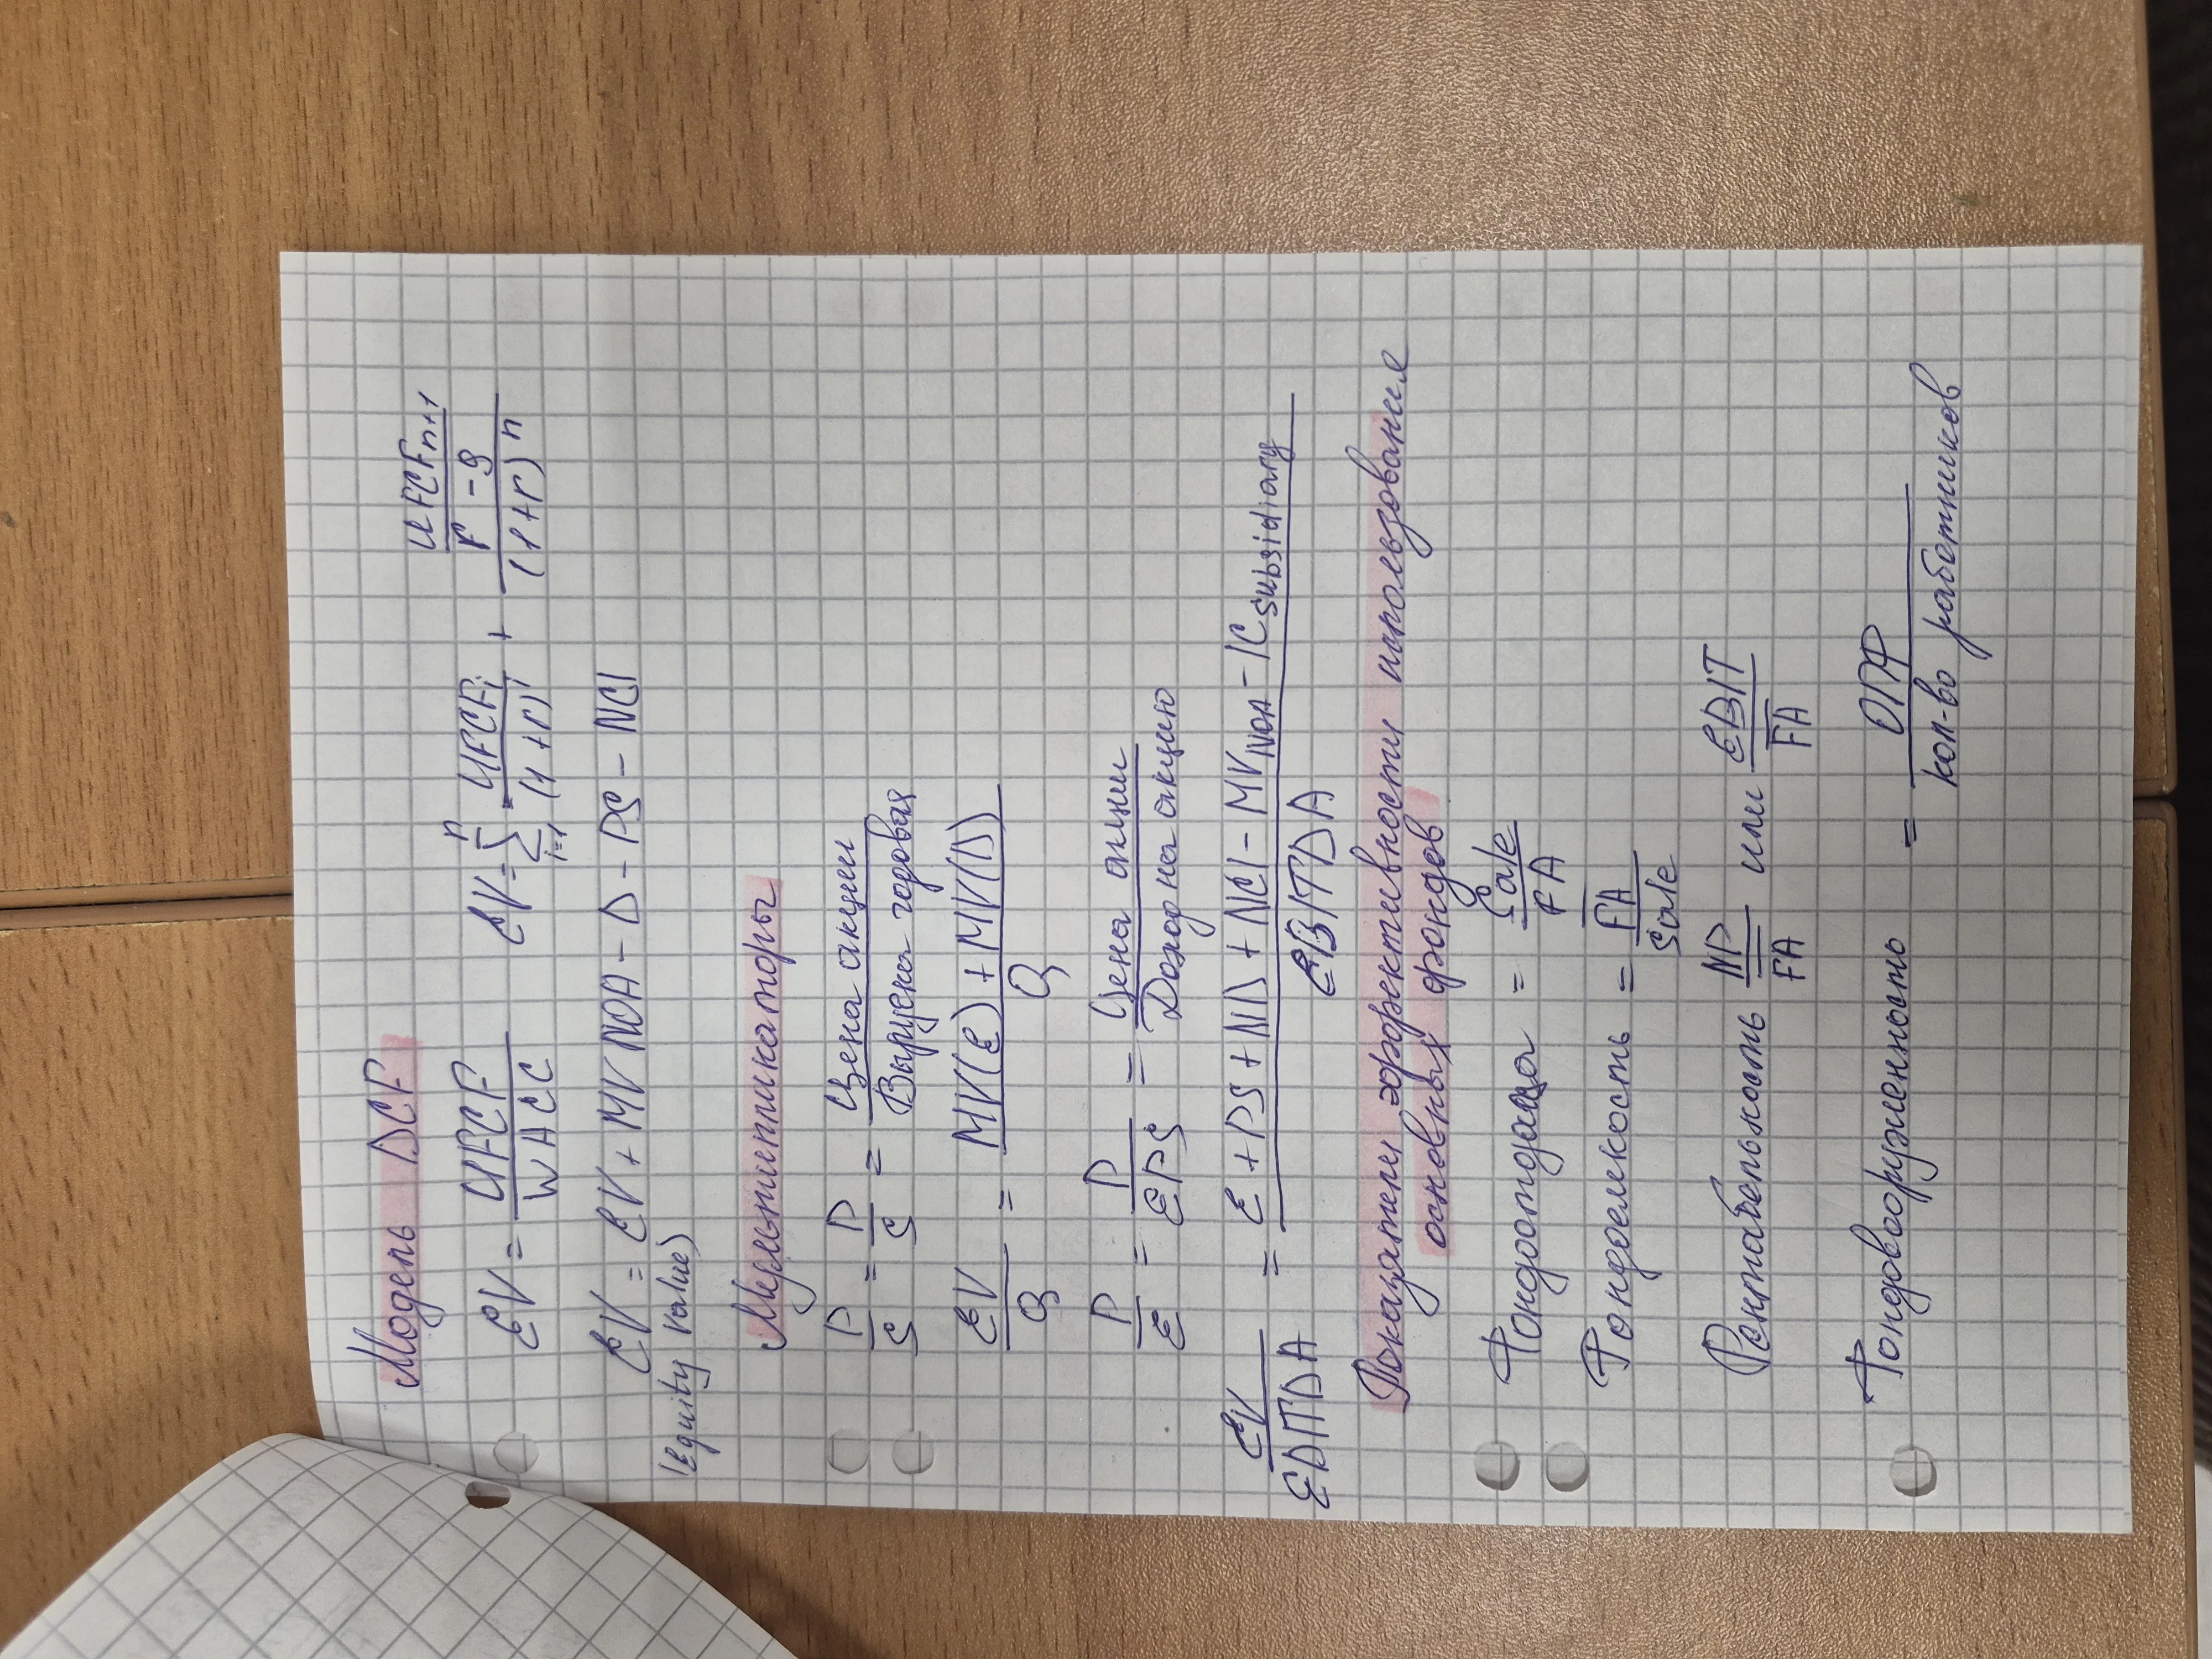 Модель DCF
EV = UFCF / WACC    EV = Σ (i=1, n) UFCFi / (1+r)^i + (UFCFn+1 / (r - g)) / (1+r)^n
EV = EV + MV NOA - D - PS - NCI
(Equity Value)
Мультипликаторы
P/S = P/S = Цена акции / Выручка годовая
EV/Q = (MV(E) + MV(D)) / Q
P/E = P/EPS = Цена акции / Доход на акцию
EV/EBITDA = (E + PS + ND + NCI - MV NOA - IC subsidiary) / EBITDA
Показатели эффективности использования
основных фондов
Фондоотдача = Sale / FA
Фондоемкость = FA / Sale
Рентабельность NP / FA или EBIT / FA
Фондовооруженность = ОПФ / кол-во работников